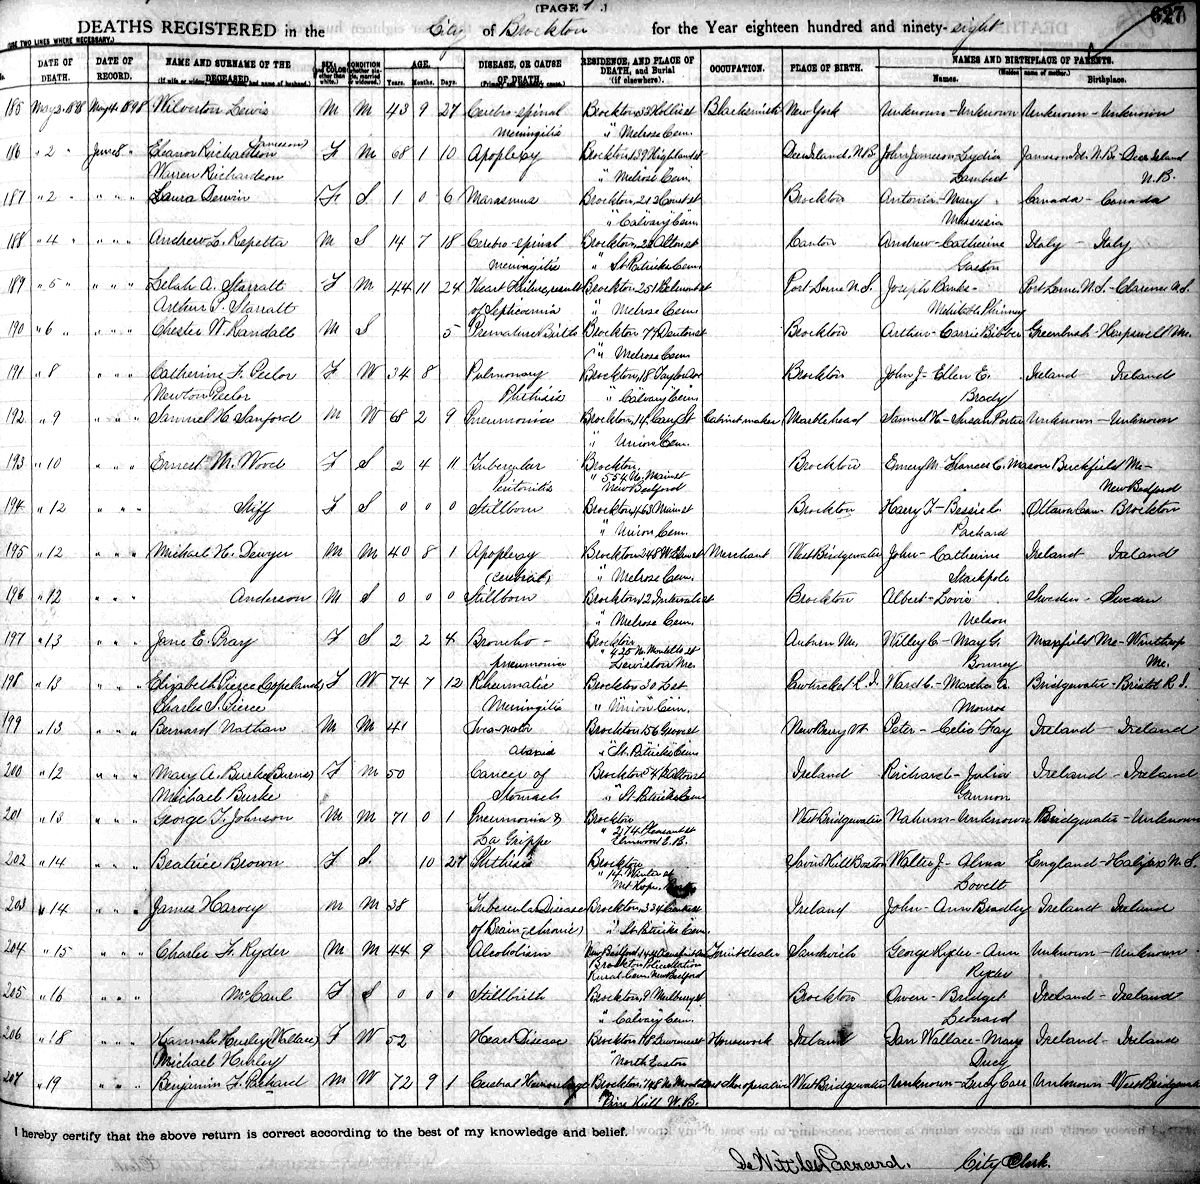 [PAGE 1.]
627
DEATHS REGISTERED in the City of Brockton for the Year eighteen hundred and ninety-eight
(USE TWO LINES WHERE NECESSARY.)
No. DATE OF DEATH. DATE OF RECORD. NAME AND SURNAME OF THE DECEASED. SEX CONDITION AGE. Years. Months. Days. DISEASE, OR CAUSE OF DEATH. RESIDENCE, AND PLACE OF DEATH, and Burial (if elsewhere). OCCUPATION. PLACE OF BIRTH. NAMES AND BIRTHPLACE OF PARENTS. Names. (Maiden name of mother.) Birthplace.
185 May 2, 1898 Wilverton Lewis M M 43 9 27 Cerebro-spinal Brockton, Blacksmith New York Unknown - Unknown Unknown - Unknown
Meningitis " Melrose Cem.
186 " 2 " June 8 " Eleanor Richardson (Jameson) F M 68 1 10 Apoplexy Brockton, 39 Highland st Deer Island, N.B. John Jameson - Lydia Jameson Id. N.B. - Deer Island
Warren Richardson " Melrose Cem. Lambert N.B.
187 " 2 " " " " Laura F S 1 0 6 Marasmus Brockton, 212 Court st Brockton Antonia - Mary Canada - Canada
" Calvary Cem.
188 " 4 " " " " Andrew L. Repetta M S 14 7 18 Cerebro-spinal Brockton, 22 Alton st Canton Andrew - Catherine Italy - Italy
Meningitis " St. Patricks Cem.
189 " 5 " " " " Lelah A. Starratt F M 44 11 24 Heart Failure, result Brockton 251 Belmont st Port Lorne N.S. Joseph Banks - Port Lorne, N.S. - Clarence N.S.
Arthur S. Starratt of Septicemia " Melrose Cem. Mehitable Phinney
190 " 6 " " " " Chester W. Randall M S 5 Premature Birth Brockton, 77 Brockton Arthur - Carrie Bibber Greenbush - Harpswell Me.
" Melrose Cem.
191 " 8 " " " Catherine F. Peeler F W 34 8 Pulmonary Brockton, 18 Taylor Av Brockton John J - Ellen E. Ireland - Ireland
Newton Peeler Phthisis " Calvary Cem. Brady
192 " 9 " " " Samuel H. Sanford M W 68 2 9 Pneumonia Brockton, 14 Cary St Cabinet maker Marblehead Samuel H - Susan Porter Unknown - Unknown
" Union Cem.
193 " 10 " " " Ernest M. Wood F S 2 4 11 Tubercular Brockton, Brockton Emery M. Frances C. Mason Buckfield Me -
Peritonitis " 554 No. Main st New Bedford
New Bedford
194 " 12 " " " Stiff F S 0 0 0 Stillborn Brockton, 463 Main st Brockton Harry T - Bessie L. Ottawa Can - Brockton
" Union Cem. Packard
195 " 12 " " " Michael H. Dewyer M M 40 8 1 Apoplexy Brockton Merchant West Bridgewater John - Catherine Ireland - Ireland
(cerebral) " Melrose Cem. Stackpole
196 " 12 " " " Anderson M S 0 0 0 Stillborn Brockton, 12 Intervale st Brockton Albert - Lovie Sweden - Sweden
" Melrose Cem. Nelson
197 " 13 " " " Jane E. Pray F S 2 2 4 Broncho - Brockton Auburn Me. Willey C - May G. Maxfield Me - Winthrop
pneumonia " 425 No. Montello st Bonney Me.
Lewiston Me.
198 " 13 " " " Elizabeth Pierce (Copeland) F W 74 7 12 Rheumatic Brockton 30 East Pawtucket R.I. Ward C - Martha A. Bridgewater - Bristol R.I.
Charles S. Pierce Meningitis " Union Cem. Monroe
199 " 13 " " " Bernard Nathan M M 41 Brockton, 156 Grove st Peter - Celia Fay Ireland - Ireland
" St. Patricks Cem.
200 " 12 " " " Mary A. Burke (Burns) F M 50 Cancer of Brockton Ireland Richard - Julia Ireland - Ireland
Michael Burke Stomach " St. Patricks Cem. Gannon
201 " 13 " " " George T. Johnson M M 71 0 1 Pneumonia & Brockton West Bridgewater Nahum - Unknown Bridgewater - Unknown
La Grippe " 274 Pleasant st
Elmwood E.B.
202 " 14 " " " Beatrice Brown F S 10 27 Phthisis Brockton Savin Hill Boston Walter J - Alma England - Halifax N.S.
" 14 Winter st Lovett
Mt Hope,
203 " 14 " " " James Harvey M M 38 Tubercular Disease Brockton, Ireland John - Ann Bradley Ireland - Ireland
of Brain - (chronic) " St. Patricks Cem.
204 " 15 " " " Charles F. Ryder M M 44 9 Alcoholism New Bedford Fruit dealer Sandwich George Ryder - Ann Unknown - Unknown
Brockton Police Station Ryder
Rural Cem. New Bedford
205 " 16 " " " McCarl F S 0 0 0 Stillbirth Brockton, 9 Mulberry st Brockton Owen - Bridget Ireland - Ireland
" Calvary Cem. Leonard
206 " 18 " " " Hannah Hurley (Wallace) F W 52 Heart Disease Brockton Lawrence st Housework Ireland Dan Wallace - Mary Ireland - Ireland
Michael Hurley " North Easton Ducy
207 " 19 " " " Benjamin F. Packard M W 72 9 1 Cerebral Hemorrhage Brockton, 748 N. Montello st Shoe operative West Bridgewater Unknown - Lucy Carr Unknown - West Bridgewater
Pine Hill W.B.
I hereby certify that the above return is correct according to the best of my knowledge and belief.
De Witt C. Packard. City Clerk.